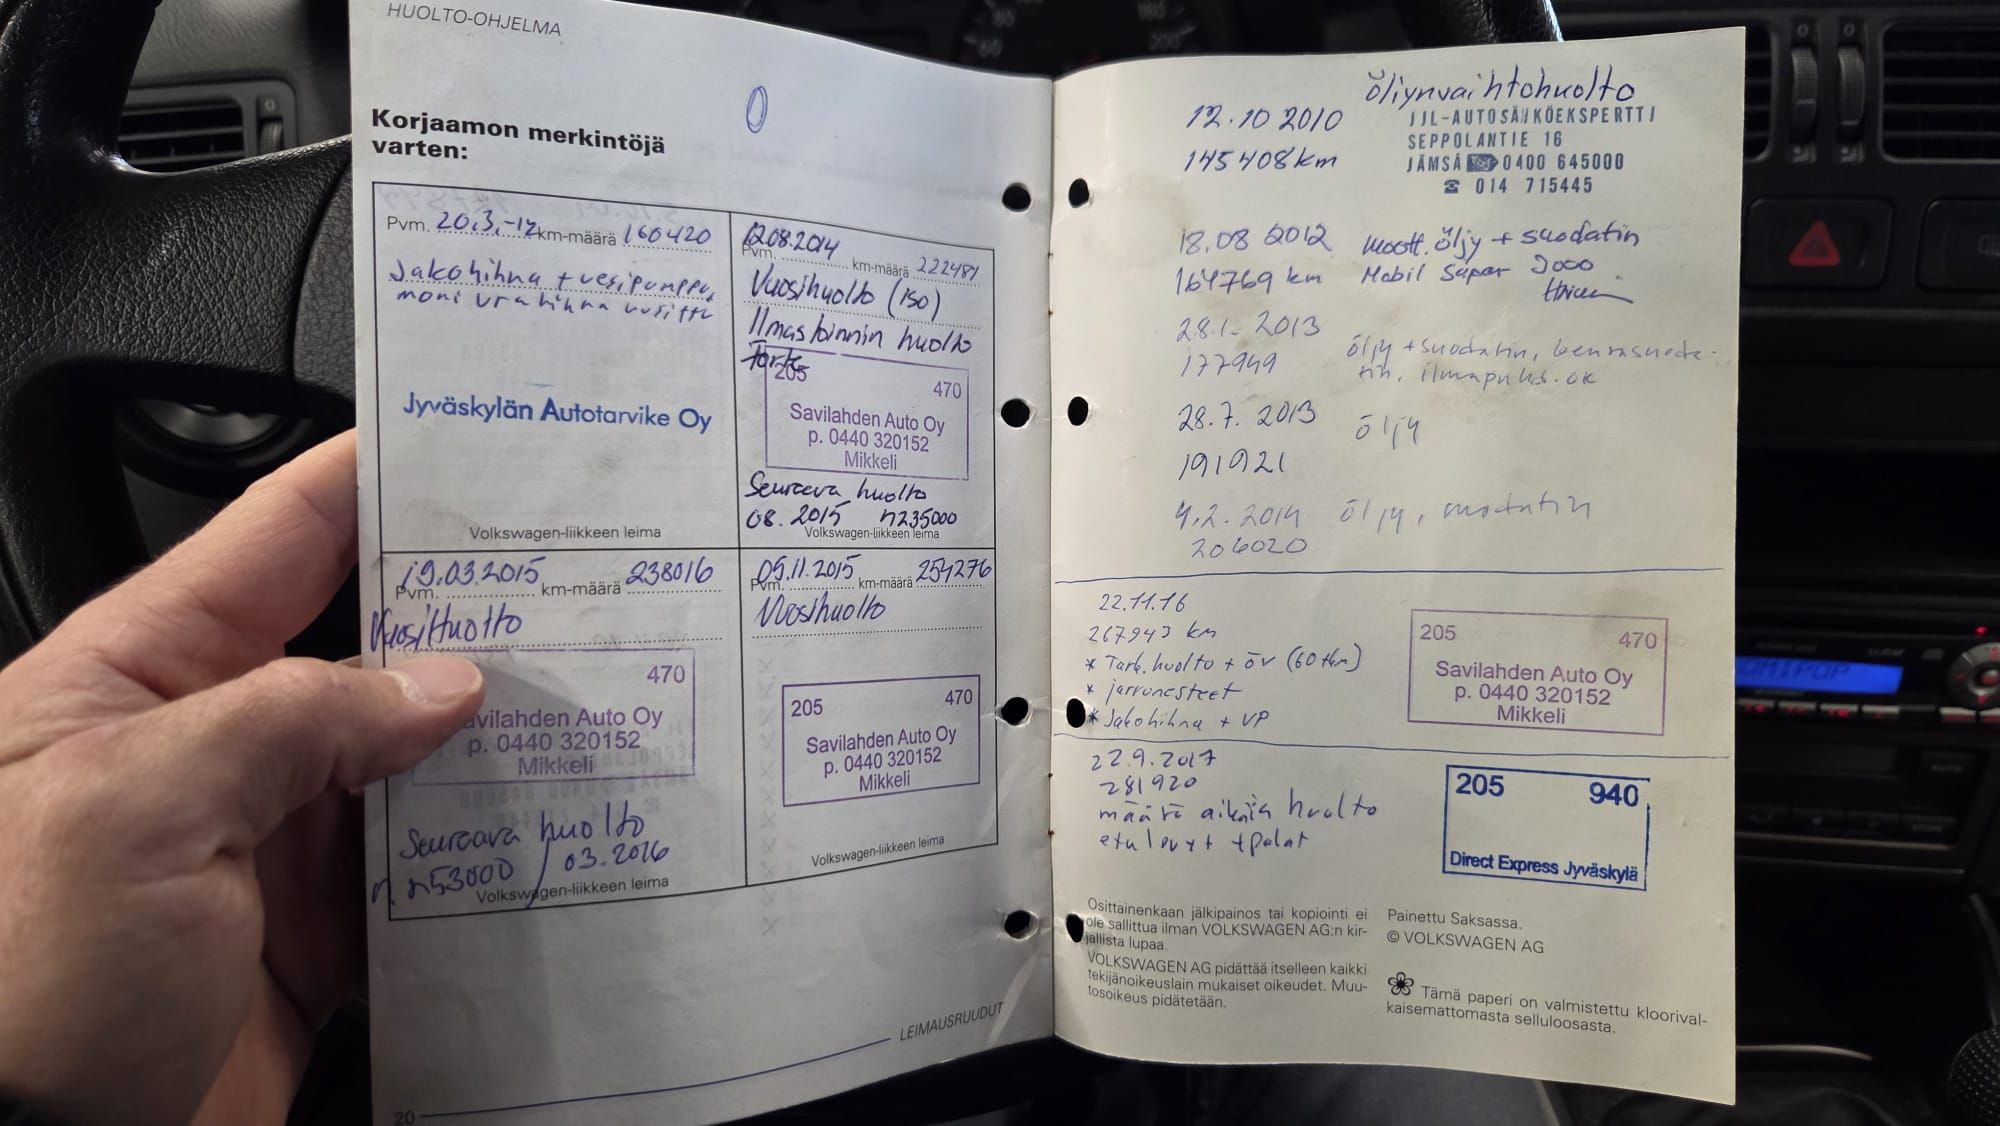 HUOLTO-OHJELMA
Korjaamon merkintöjä
varten:
Pvm. 20.3.-12 km-määrä 160420
Jakohihna + vesipumppu,
moniurahihna uusittu
Jyväskylän Autotarvike Oy
Volkswagen-liikkeen leima
Pvm. 12.08.2014 km-määrä 222481
Vuosihuolto (iso)
Ilmastoinnin huolto
205 470
Savilahden Auto Oy
p. 0440 320152
Mikkeli
Seuraava huolto
08. 2015 n235000
Volkswagen-liikkeen leima
Pvm. 19.03.2015 km-määrä 238016
Vuosihuolto
470
avilahden Auto Oy
p. 0440 320152
Mikkeli
Seuraava huolto
n. 253000 / 03.2016
Volkswagen-liikkeen leima
Pvm. 05.11.2015 km-määrä 254276
Vuosihuolto
205 470
Savilahden Auto Oy
p. 0440 320152
Mikkeli
Volkswagen-liikkeen leima
LEIMAUSRUUDUT
20
öljynvaihtohuolto
12.10 2010
145408 km
JJL-AUTOSÄHKÖEKSPERTTI
SEPPOLANTIE 16
JÄMSÄ 0400 645000
☎ 014 715445
18.08 2012 moott. öljy + suodatin
164769 km Mobil Super 3000
28.1. 2013
177949
öljy + suodatin,
28.7. 2013 öljy
191921
4.2. 2014 öljy, suodatin
206020
22.11.16
267943 km
* Tark. huolto + öv (60 tkm)
* jarrunesteet
* Jakohihna + VP
205 470
Savilahden Auto Oy
p. 0440 320152
Mikkeli
22.9.2017
281920
määrä aikais huolto
etulevyt + palat
205 940
Direct Express Jyväskylä
Osittainenkaan jälkipainos tai kopiointi ei
ole sallittua ilman VOLKSWAGEN AG:n kir-
jallista lupaa.
VOLKSWAGEN AG pidättää itselleen kaikki
tekijänoikeuslain mukaiset oikeudet. Muu-
tosoikeus pidätetään.
Painettu Saksassa.
© VOLKSWAGEN AG
Tämä paperi on valmistettu kloorival-
kaisemattomasta selluloosasta.